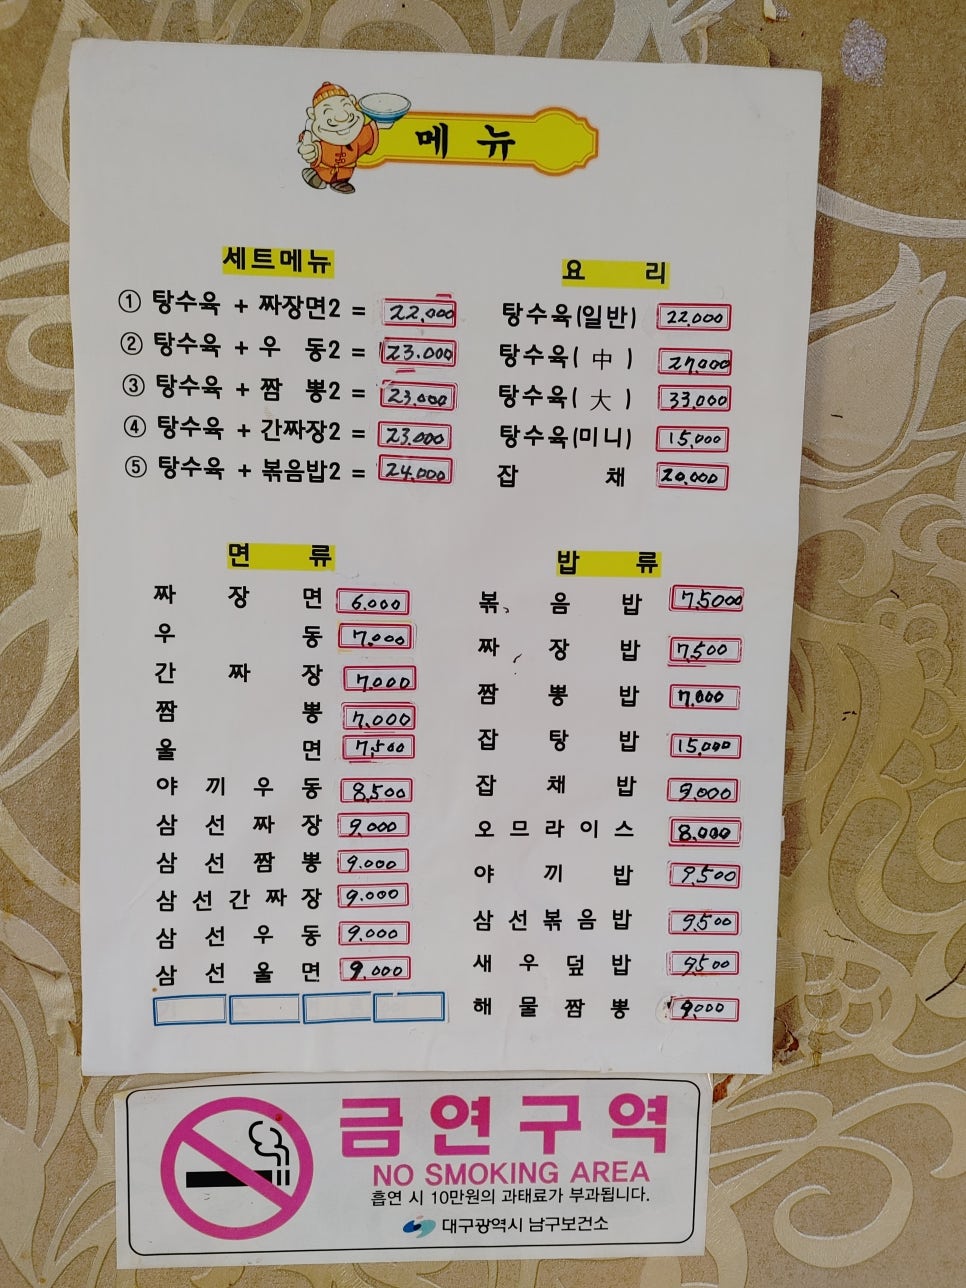 메뉴
세트메뉴
① 탕수육 + 짜장면2 = 22,000
② 탕수육 + 우 동2 = 23.000
③ 탕수육 + 짬 뽕2 = 23,000
④ 탕수육 + 간짜장2 = 23,000
⑤ 탕수육 + 볶음밥2 = 24,000
요 리
탕수육(일반) 22,000
탕수육( 中 ) 27,000
탕수육( 大 ) 33,000
탕수육(미니) 15,000
잡 채 20,000
면 류
짜 장 면 6.000
우 동 7,000
간 짜 장 7.000
짬 뽕 7,000
울 면 7,500
야 끼 우 동 8,500
삼 선 짜 장 9,000
삼 선 짬 뽕 9.000
삼 선 간 짜 장 9.000
삼 선 우 동 9.000
삼 선 울 면 9.000
밥 류
볶 음 밥 7,5000
짜 장 밥 7,500
짬 뽕 밥 7,000
잡 탕 밥 15,000
잡 채 밥 9,000
오 므 라 이 스 8,000
야 끼 밥 9,500
삼 선 볶 음 밥 9,500
새 우 덮 밥 9,500
해 물 짬 뽕 9,000
금연구역
NO SMOKING AREA
흡연 시 10만원의 과태료가 부과됩니다.
대구광역시 남구보건소